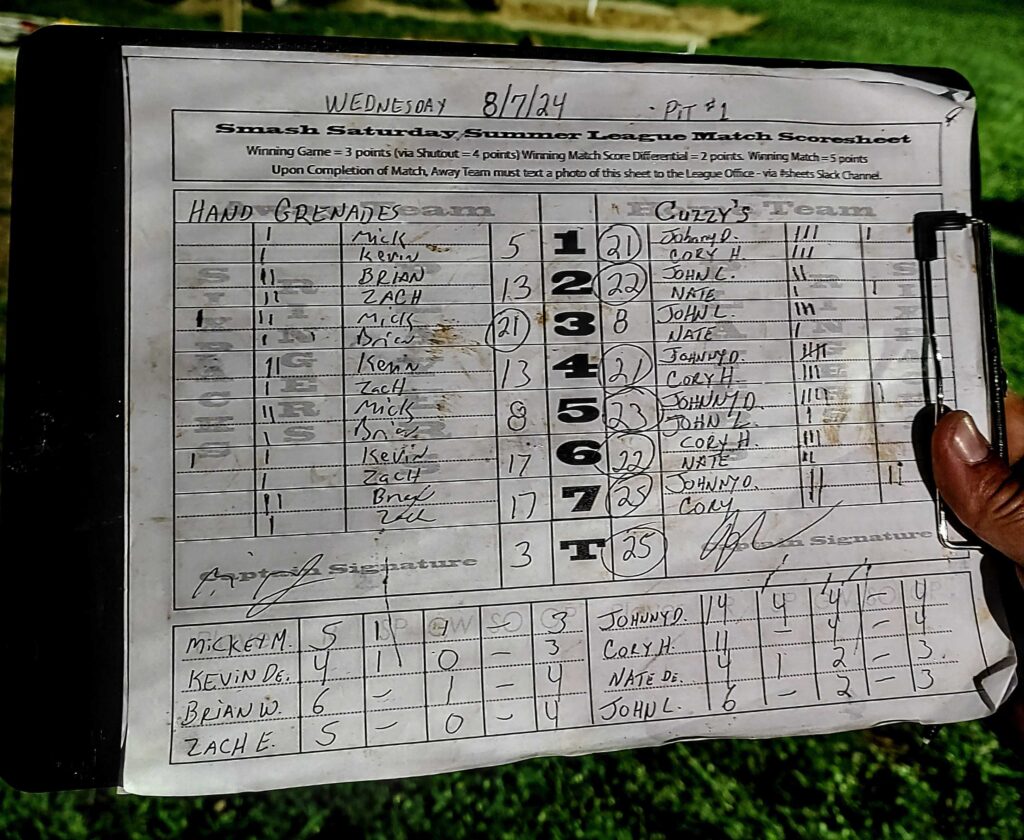 WEDNESDAY 8/7/24 - PIT #1
Smash Saturday Summer League Match Scoresheet
Winning Game = 3 points (via Shutout = 4 points) Winning Match Score Differential = 2 points. Winning Match = 5 points
Upon Completion of Match, Away Team must text a photo of this sheet to the League Office - via #sheets Slack Channel.
HAND GRENADES Cuzzy's Team
Mick 5 1 21 Johnny D.
Kevin CORY H.
BRIAN 13 2 22 JOHN L.
ZACH NATE
Mick 21 3 8 JOHN L.
Brian NATE
Kevin 13 4 21 JOHNNY D.
Zach CORY H.
Mick 8 5 23 JOHNNY D.
Brian JOHN L.
Kevin 17 6 22 CORY H.
Zach NATE
Brian 17 7 25 JOHNNY D.
Zach CORY
Captain Signature 3 T 25 Captain Signature
MICKEY M. 5 1 1 - 3 JOHNNY D. 14 4 4 - 4
KEVIN DE. 4 1 0 - 3 CORY H. 11 - 4 - 4
BRIAN W. 6 - 1 - 4 NATE DE. 4 1 2 - 3
ZACH E. 5 - 0 - 4 JOHN L. 6 - 2 - 3